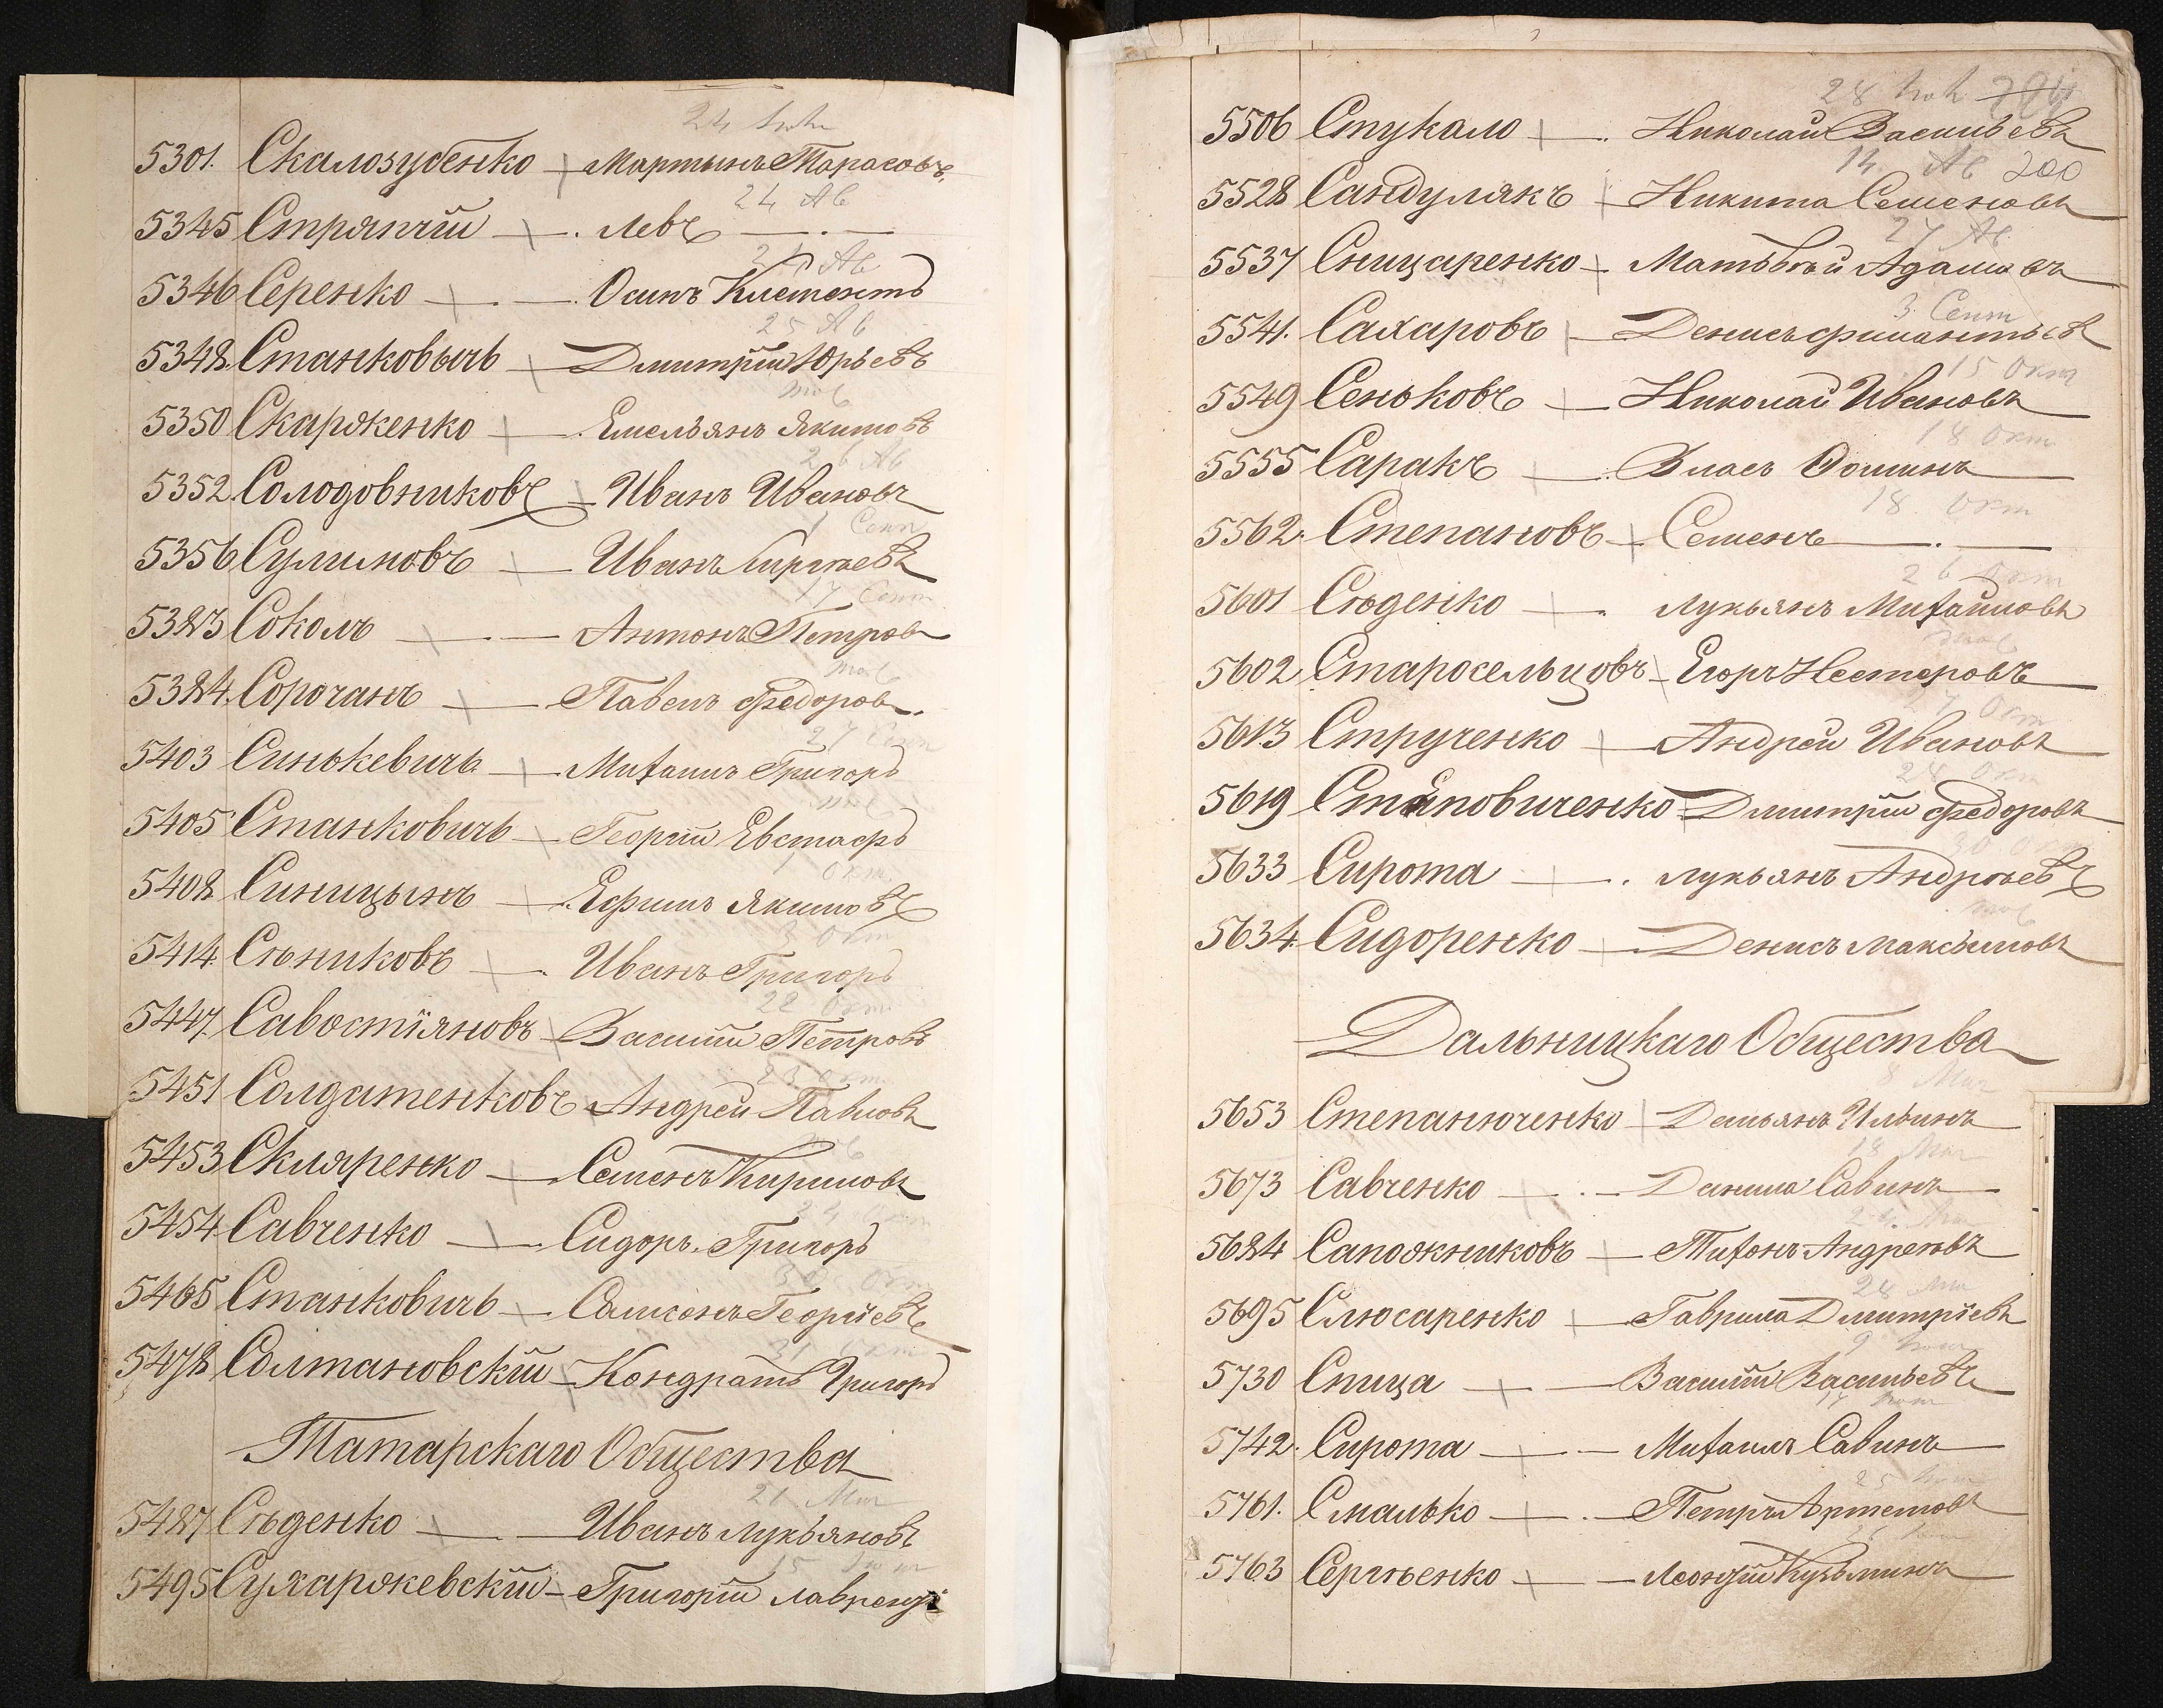 24
5301. Скалозубенко — Мартынъ Тарасовъ.
24 Ав
5345 Стряпчій — Левъ —
24 Ав
5346 Серенко — Осипъ Клементъ
25 Ав
5348. Станковычь — Дмитрій Юрьевъ
5350 Скарженко — Емельянъ Якимовъ
26 Ав
5352 Солодовниковъ — Иванъ Ивановъ
1 Сент
5356 Сулимовъ — Иванъ Сергѣевъ
17 Сент
5383 Соколъ — Антонъ Петров
5384. Сорочанъ — Павелъ Федоров.
27 Сент
5403 Синькевичь — Михаилъ Григорь
5405 Станковичь — Георгій Евстафь
1 Окт.
5408 Синицынъ — Ефимъ Якимовъ
3 Окт
5414. Сѣниковъ — Иванъ Григорь
22 Окт
5447. Савостіяновъ — Василій Петровъ
23 Окт
5451 Солдатенковъ — Андрей Павловъ
5453 Скляренко — Семенъ Кириловъ
24 Окт
5454 Савченко — Сидоръ Григорь
30 Окт
5465 Станковичь — Самсонъ Георгіевъ
31 Окт
5478 Солтановскій — Кондратъ Григорь
Татарскаго Общества
21 Мая
5487 Сѣденко — Иванъ Лукьяновъ
15
5495 Сухаржевскій — Григорій Лавренті
28
5506 Стукало — Николай Васильевъ
14 Ав 200
5528 Сандулякъ — Никита Семеновъ
27 Ав
5537 Сницаренко — Матьвѣй Адамовъ
3 Сент
5541. Сахаровъ — Денисъ Филантьев
15 Окт
5549 Сеньковъ — Николай Ивановъ
18 Окт
5555 Саракъ — Власъ Фоминъ
18 Окт
5562. Степановъ — Семенъ —
26 Окт
5601 Сѣденко — Лукьянъ Михайловъ
5602 Старосельцовъ — Егоръ Нестеровъ
27 Окт
5613 Струченко — Андрей Ивановъ
28 Окт
5619 Степовиченко — Дмитрій Федоровъ
30 Окт
5633 Сирота — Лукьянъ Андреевъ
5634. Сидоренко — Денисъ Максимовъ
Дальницкаго Общества
8 Мая
5653 Степанюченко — Демьянъ Ильинъ
18 Мая
5673 Савченко — Данила Савинъ
5684 Сапожниковъ — Тихонъ Андреевъ
28 Мая
5695 Слюсаренко — Гаврила Дмитріевъ
9
5730 Спица — Василій Васильевъ
17
5742. Сирота — Михаилъ Савинъ
25
5761. Смалько — Петръ Артемовъ
5763 Сергѣенко — Леонтій Кузьминъ